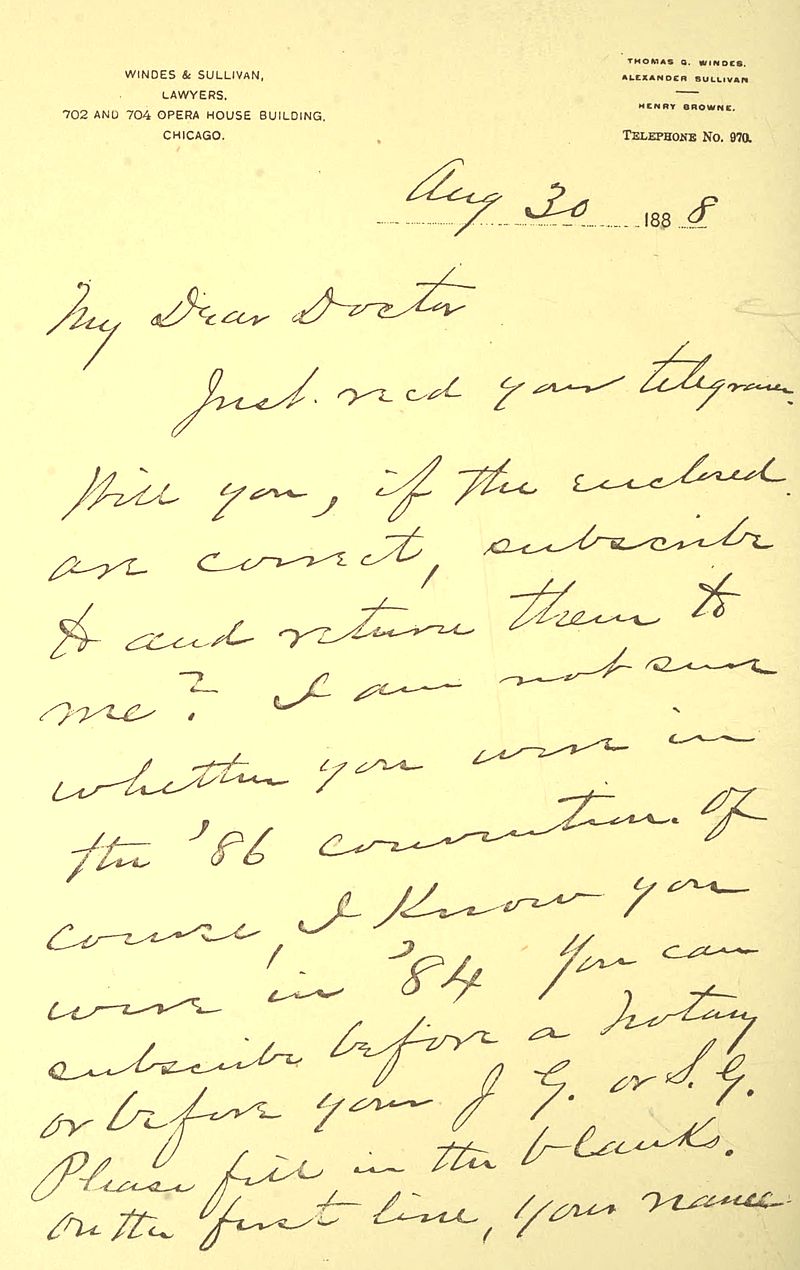 WINDES & SULLIVAN,
LAWYERS.
702 AND 704 OPERA HOUSE BUILDING.
CHICAGO.
THOMAS G. WINDES.
ALEXANDER SULLIVAN
HENRY BROWNE.
TELEPHONE No. 970.
Aug 30 1888
My Dear Doctor
Just. recd your telegram.
Will you, if the enclosed
are correct, subscribe
to and return them to
me? I am not sure
whether you were in
the '86 convention. Of
course, I know you
were in '84 You can
subscribe before a notary
or before your J. G. or S. G.
Please fill in the blanks.
On the first line, your name